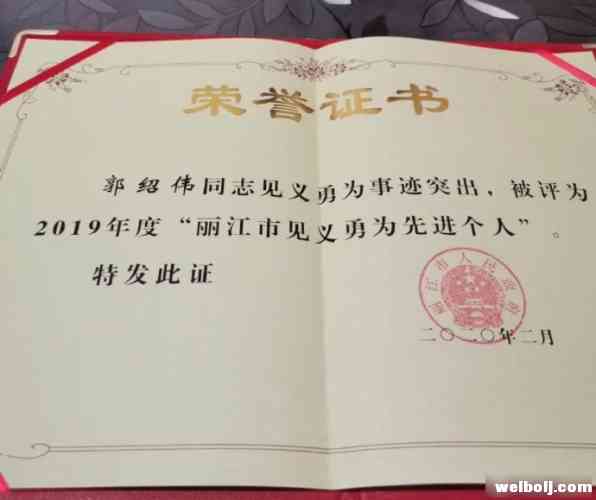 荣誉证书
郭绍伟同志见义勇为事迹突出，被评为
2019年度“丽江市见义勇为先进个人”。
特发此证
丽江市人民政府
二〇二〇年二月
welbolj.com